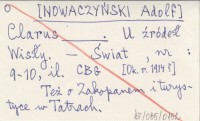 [NOWACZYŃSKI Adolf]
Clarus ___. U źródeł
Wisły. — Świat, nr:
9-10, il. CBG [Ok. r. 1914?]
Też o Zakopanem i turys-
tyce w Tatrach.